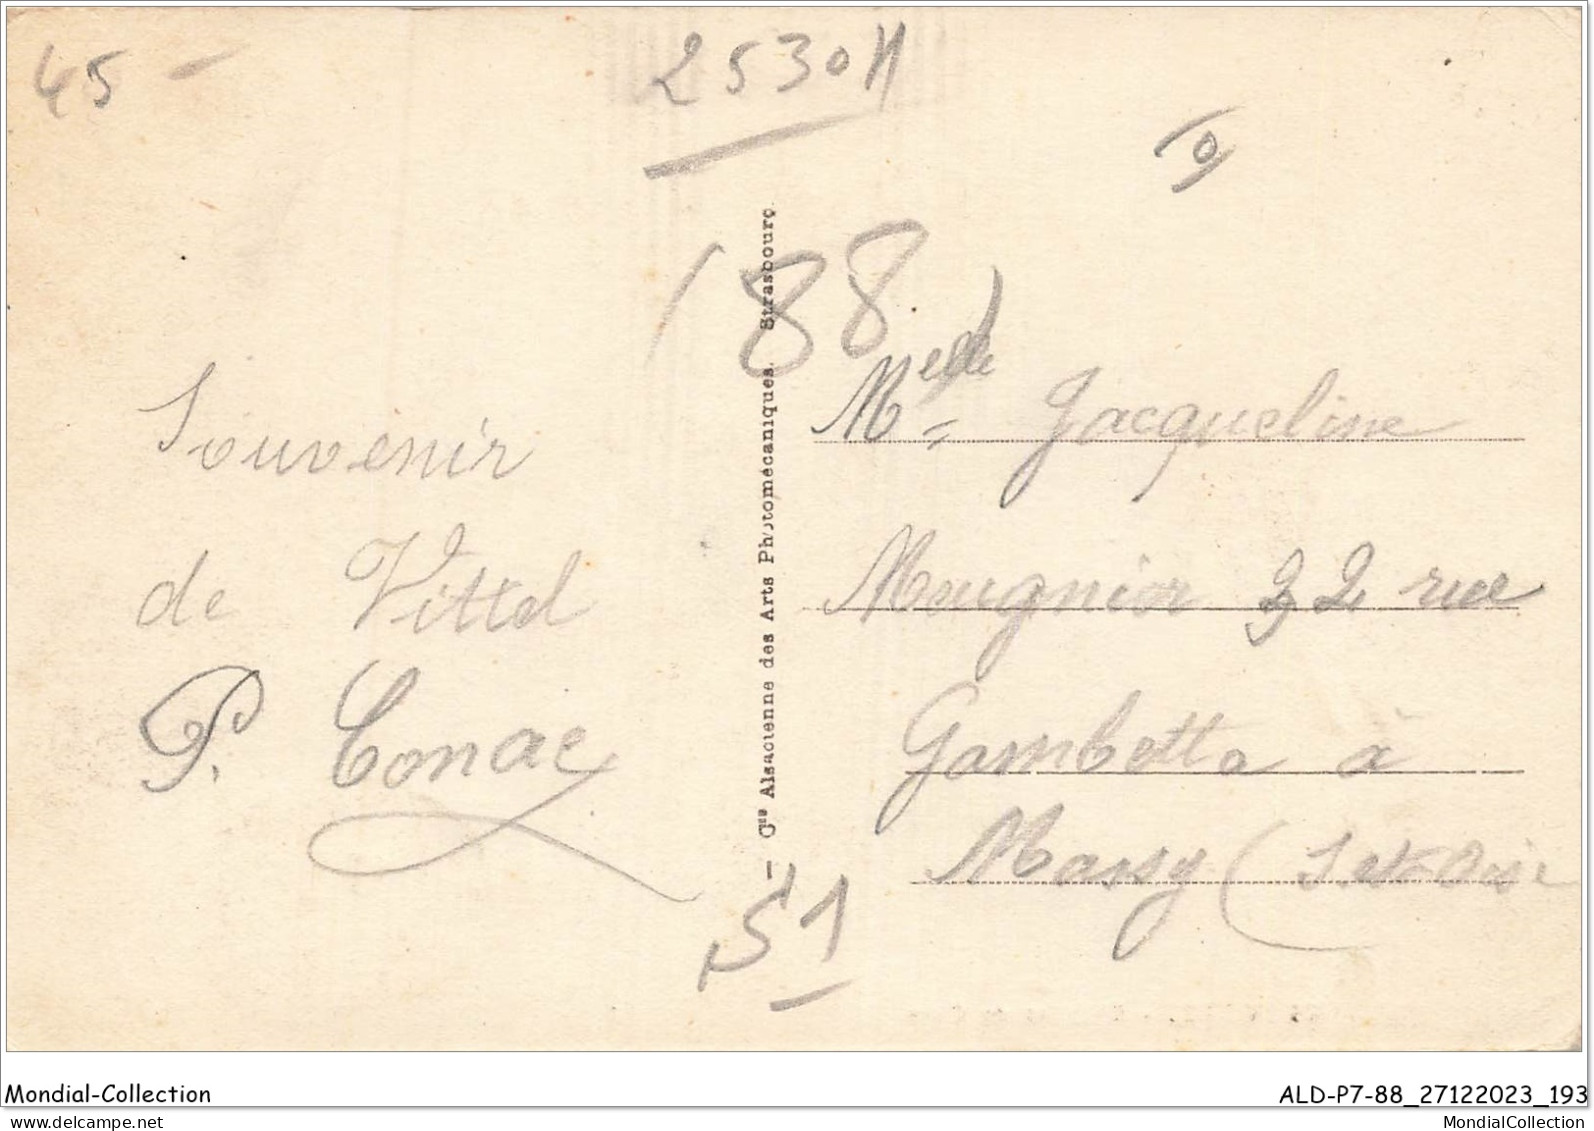 45 -
2530H
(88)
Souvenir
de Vittel
P. Conac
— Cie Alsacienne des Arts Photomécaniques. Strasbourg.
51
Melle Jacqueline
Meugnior 32 rue
Gambetta à
Massy (S. et Oise
Mondial-Collection
ALD-P7-88_27122023_193
MondialCollection